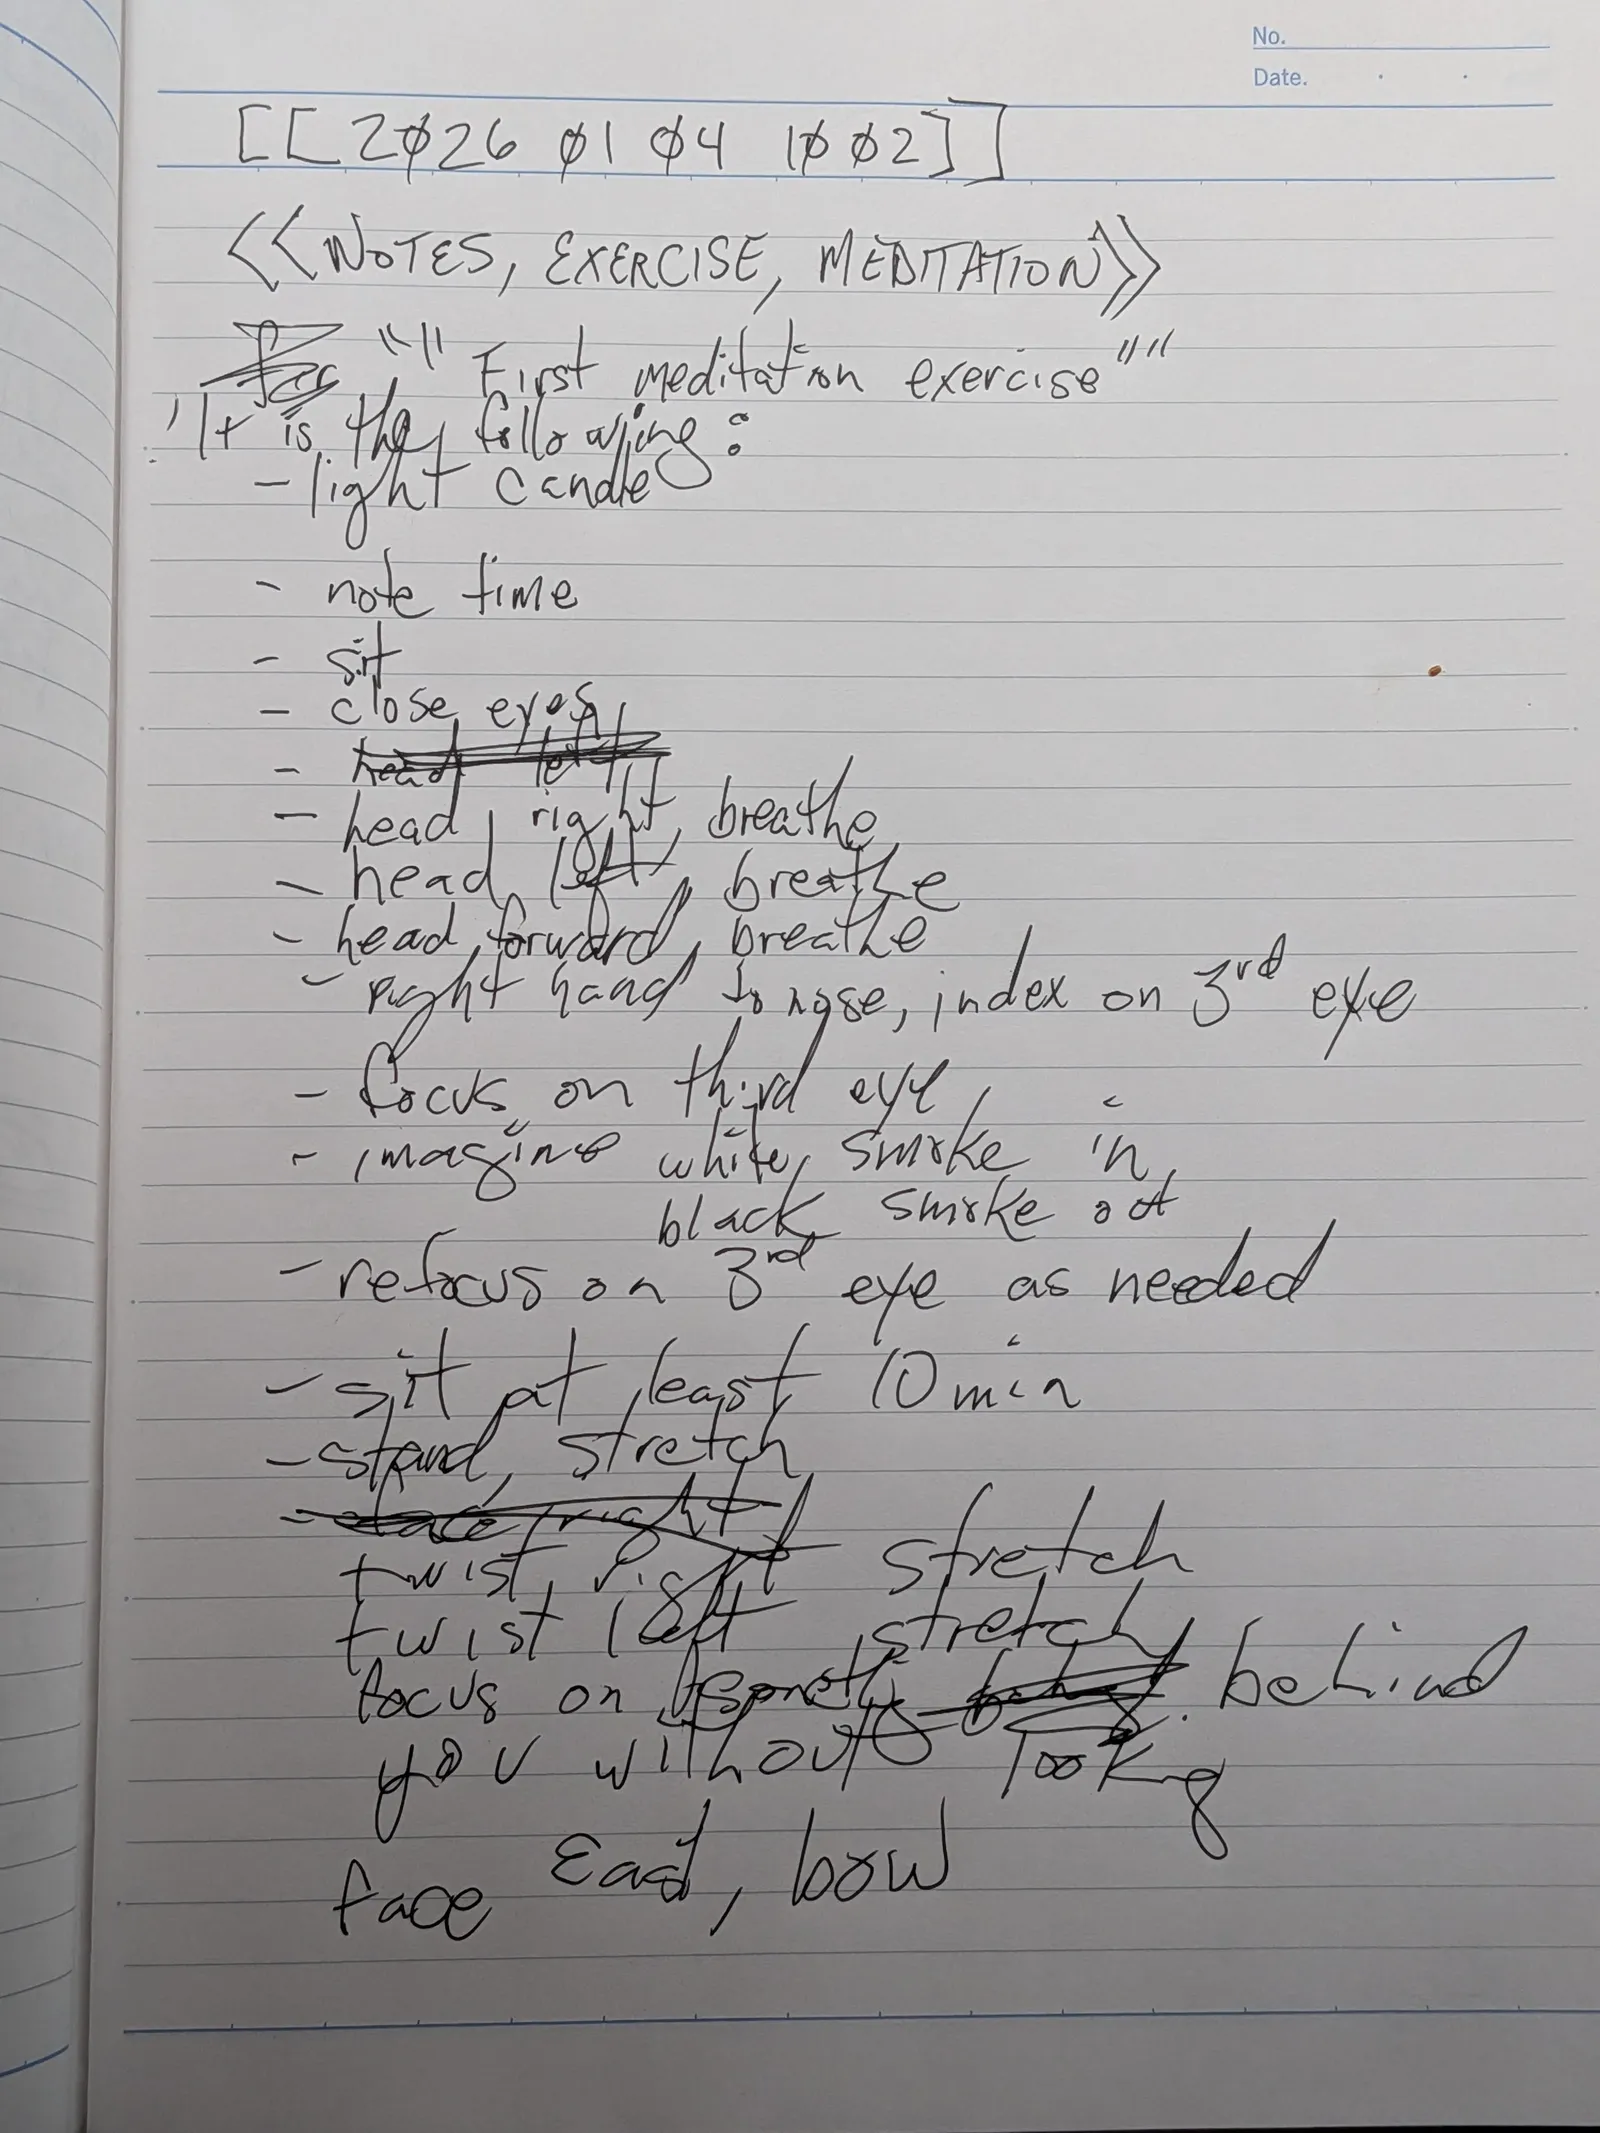 No.
Date.
[[2026 01 04 1002]]
<<NOTES, EXERCISE, MEDITATION>>
"" First meditation exercise""
It is the following:
- light candle
- note time
- sit
- close eyes
- head left
- head right, breathe
- head left, breathe
- head forward, breathe
- right hand to nose, index on 3rd eye
- focus on third eye
- imagine white smoke in,
black smoke out
- refocus on 3rd eye as needed
- sit at least 10 min
- stand, stretch
- right
twist right stretch
twist left stretch
focus on behind
you without lookng
face East, bow